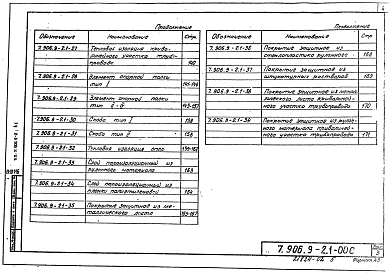 Продолжение
Обозначение Наименование Стр.
7.906.9-2.1-27 Тепловая изоляция криво-
линейного участка трубо-
провода 142
7.906.9-2.1-28 Элемент опорной полки
тип 1
7.906.9-2.1-29 Элемент опорной полки
тип
7.906.9-2.1-30 Скоба тип 1 158
7.906.9-2.1-31 Скоба тип
7.906.9-2.1-32 Тепловая изоляция опор
7.906.9-2.1-33 Слой пароизоляционный из
рулонного материала 163
7.906.9-2.1-34 Слой пароизоляционный из
пленки полиэтиленовой 164
7.906.9-2.1-35 Покрытие защитное из ме-
таллического листа 165-167
Продолжение
Обозначение Наименование Стр.
7.906.9-2.1-36 Покрытие защитное из
стеклопластика рулонного 168
7.906.9-2.1-37 Покрытие защитное из
штукатурных растворов 169
7.906.9-2.1-38 Покрытие защитное из метал-
лического листа криволиней-
ного участка трубопровода 170
7.906.9-2.1-39 Покрытие защитное из рулон-
ного материала криволиней-
ного участка трубопровода 171
7.906.9-2.1-00С
3
Формат А3